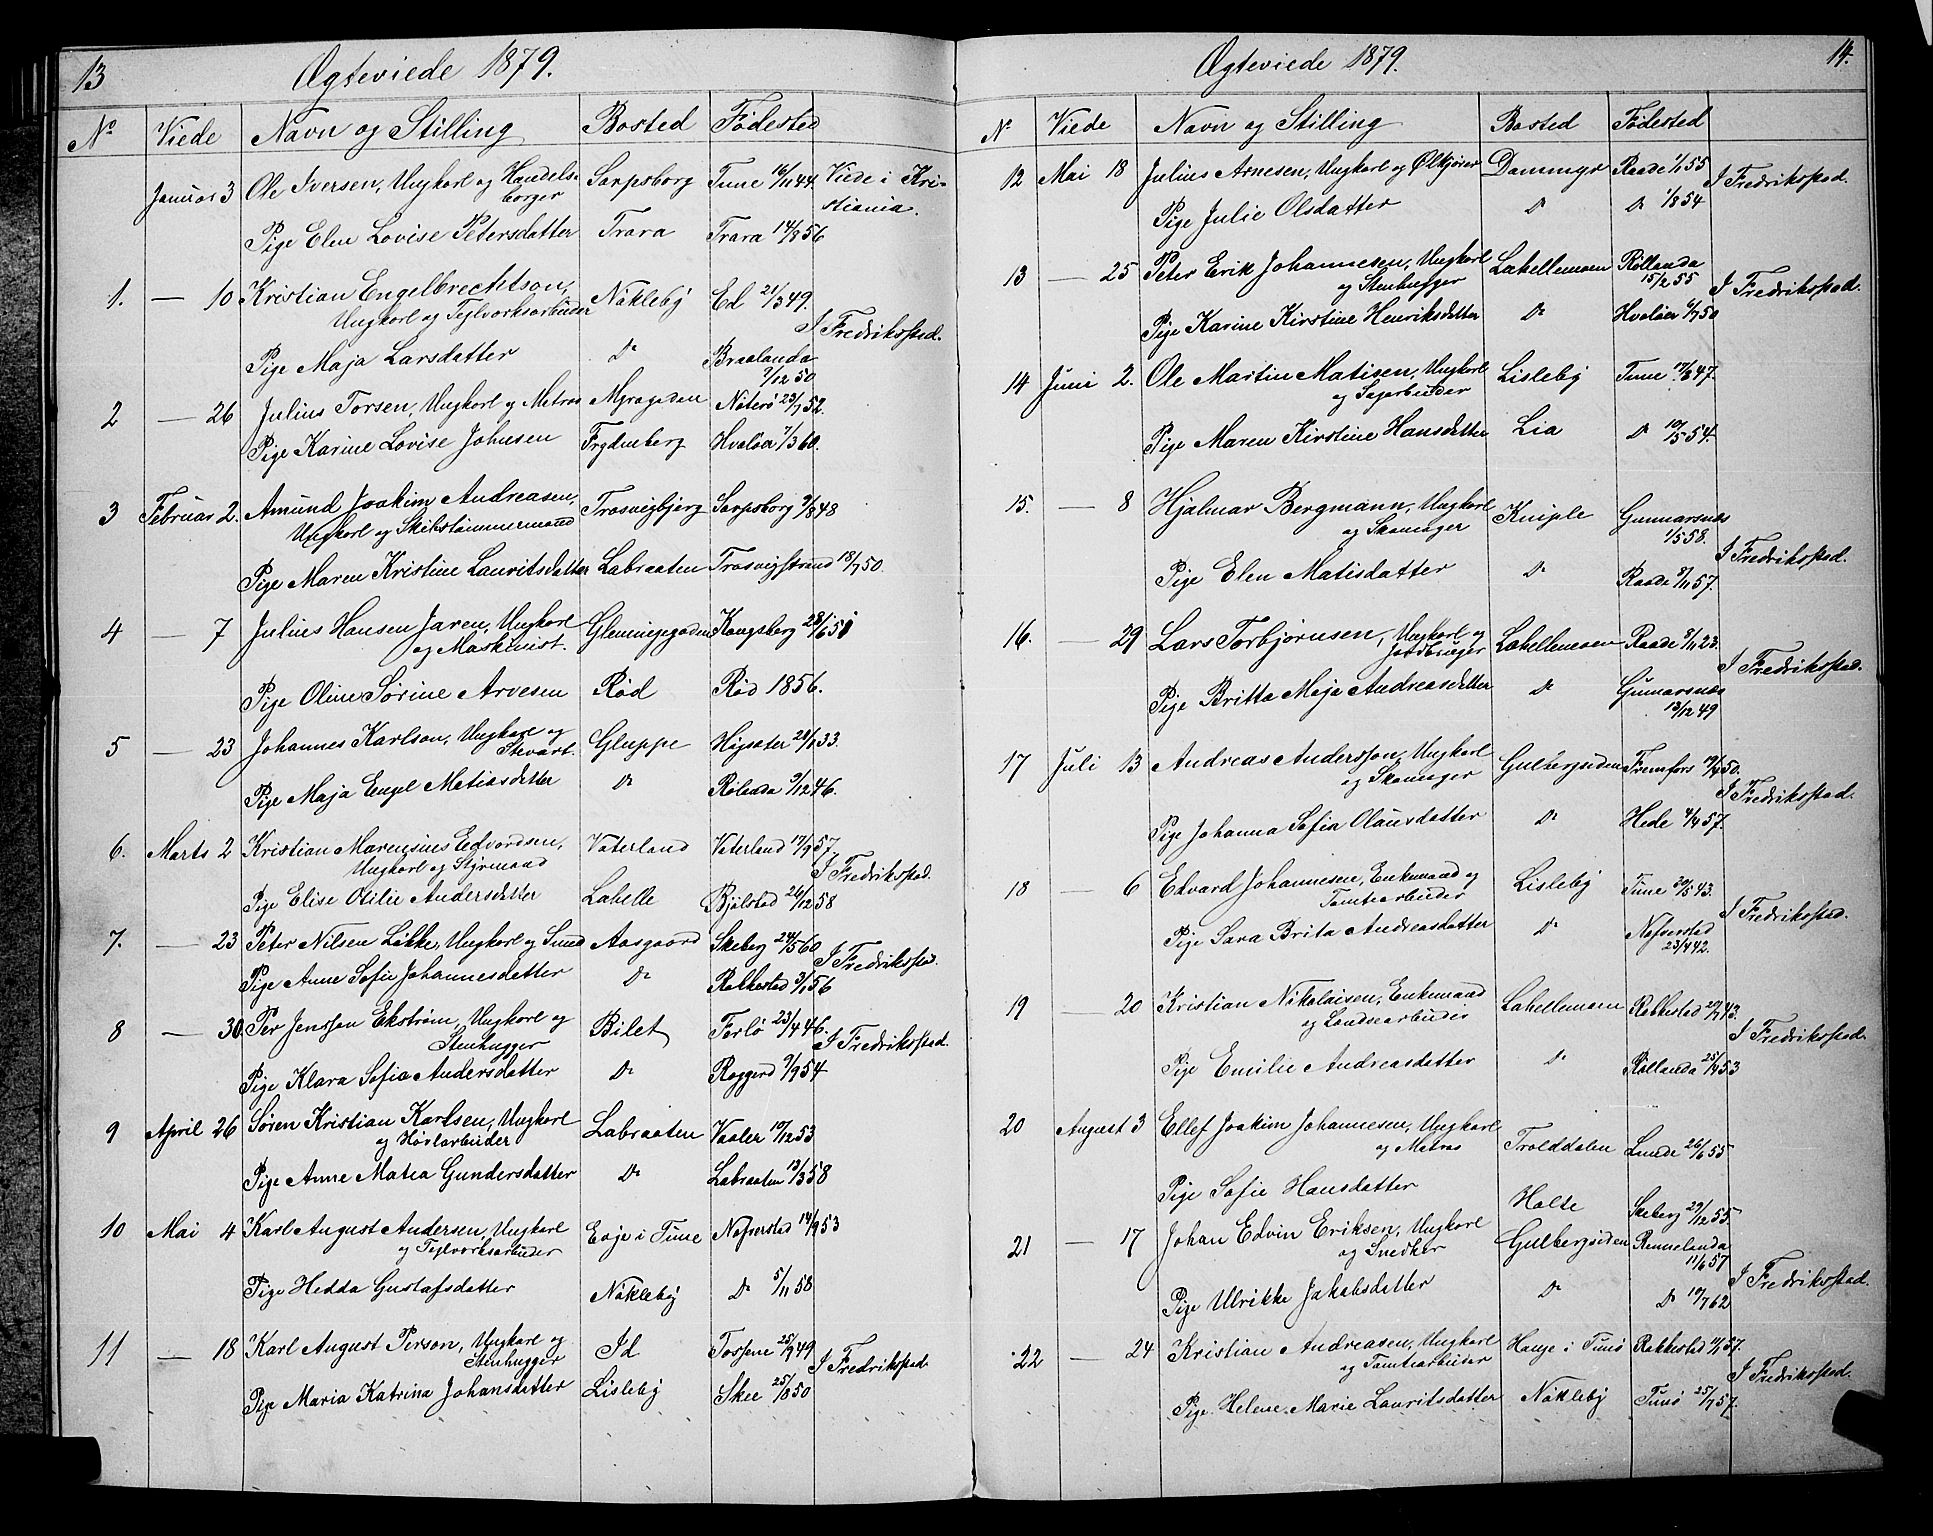 13 Ægteviede 1879.
No Viede Navn og Stilling Bosted Fødested
Januar 3 Ole Iversen, Ungkarl og Handels- Sarpsborg Tune 16/11 44. Viede i Kri-
borger stiania.
Pige Elen Lovise Petersdatter Trara Trara 14/8 56
1. — 10 Kristian Engelbrechtson, Nøkleby Ed 21/3 49.
Ungkarl og Teglverksarbeider I Fredrikstad.
Pige Maja Larsdatter Do Braalanda
9/12 50
2 — 26 Julius Torsen, Ungkarl og Matros Myragaden Nøterø 23/7 52.
Pige Karine Lovise Johnsen Frydenberg Hvaløer 7/3 60.
3 Februar 2. Amund Joakim Andreasen, Trosvigbjerg Sarpsborg 9/8 48
Ungkarl og Skibstømmermand
Pige Maren Kristine Lauritsdatter Labraaten Trosvigstrand 18/7 50.
4 — 7 Julius Hansen Jaren, Ungkarl Glemmegaden Kongsberg 28/6 51
og Maskinist.
Pige Oline Sørine Arvesen Rød Rød 1856.
5 — 23 Johannes Karlson, Ungkarl og Gluppe Høgsæter 28/1 33.
Stevart.
Pige Maja Engel Matiasdatter Do Rølanda 9/12 46.
6. Marts 2 Kristian Marensius Edvardsen, Vaterland Vaterland 17/9 57
Ungkarl og Styrmand I Fredrikstad.
Pige Elise Otilie Andersdatter Labelle 26/12 58
7. — 23 Peter Nilsen Løkke, Ungkarl og Smed Aasgaard Skeberg 24/5 60 I Fredrikstad.
Pige Anne Sofie Johannesdatter Do Rakkestad 3/1 56
8 — 30 Per Jensson Ekstrøm, Ungkarl og Bilet Ferlø 23/4 46.
Stenhugger I Fredrikstad.
Pige Klara Sofia Andersdatter Do Roggerd 9/9 54
9 April 26 Søren Kristian Karlsen, Ungkarl Labraaten Vaaler 10/12 53
og Høvlarbeider
Pige Anne Matea Gundersdatter Do Labraaten 13/3 58
10 Mai 4 Karl August Andersen, Ungkarl Evje i Tune Nafverstad 14/9 53
og Teglverksarbeider
Pige Hedda Gustafsdatter Nøkleby Do 5/11 58
11 — 18 Karl August Person, Ungkarl og Id Tossene 25/9 49 I Fredrikstad
Stenhugger
Pige Maria Katrina Johansdatter Lisleby Skee 25/8 50
Ægteviede 1879. 14.
No Viede Navn og Stilling Bosted Fødested
12 Mai 18 Julius Arnesen, Ungkarl og Ølkjører Dammyr Raade 1/1 55 I Fredrikstad.
Pige Julie Olsdatter Do Do 1/8 54
13 — 25 Peter Erik Johannesen, Ungkarl Labellemoen Røllanda
og Stenhugger 15/2 55 I Fredrikstad.
Pige Karine Kirstine Henriksdatter Do Hvaløer 6/7 50
14 Juni 2. Ole Martin Matisen, Ungkarl Lisleby Tune 17/3 47.
og Sagarbeider
Pige Maren Kirstine Hansdatter Lia Do 10/5 54.
15. — 8 Hjalmar Bergmann, Ungkarl Kniple Gunnarsnæs
og Skomager 1/5 58. I Fredrikstad.
Pige Elen Matisdatter Do Raade 8/11 57.
16. — 29 Lars Torbjørnsen, Ungkarl og Labellemoen Raade 8/11 23.
Jordbruger I Fredrikstad.
Pige Britta Maja Andreasdatter Do Gunnarsnæs
13/12 49
17 Juli 13 Andreas Andersson, Ungkarl Gulbergsiden 17/4 50.
og Skomager I Fredrikstad.
Pige Johanna Sofia Olausdatter Do Hede 4/4 57.
18 — 6 Edvard Johannesen, Enkemand og Lisleby Tune 30/5 43.
Tomtearbeider I Fredrikstad.
Pige Sara Brita Andreasdatter Do Nafverstad
23/4 42.
19 — 20 Kristian Nikolaisen, Enkemand Labellemoen Rakkestad 29/7 43.
og Landsearbeider I Fredrikstad.
Pige Emilie Andreasdatter Do Røllanda 25/4 53
20 August 3 Ellef Joakim Johannesen, Ungkarl
og Matros Trolddalen Lande 26/6 55
Pige Sofie Hansdatter Holte Skeberg 29/12 55.
21 — 17 Johan Edvin Eriksen, Ungkarl Gulbergsiden Rennelanda
og Snedker 11/6 57 I Fredrikstad.
Pige Ulrikke Jakobsdatter Do Do 10/7 62
22 — 24 Kristian Andreasen, Ungkarl Hauge i Tunø Rakkestad 11/1 57.
og Tomtearbeider I Fredrikstad.
Pige Helene Marie Lauritsdatter Nøkleby Tunø 25/7 57.